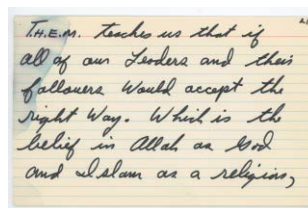 T.H.E.M. teaches us that if
all of our Leaders and their
followers Would accept the
right Way. Which is the
belief in Allah as God
and Islam as a religion,